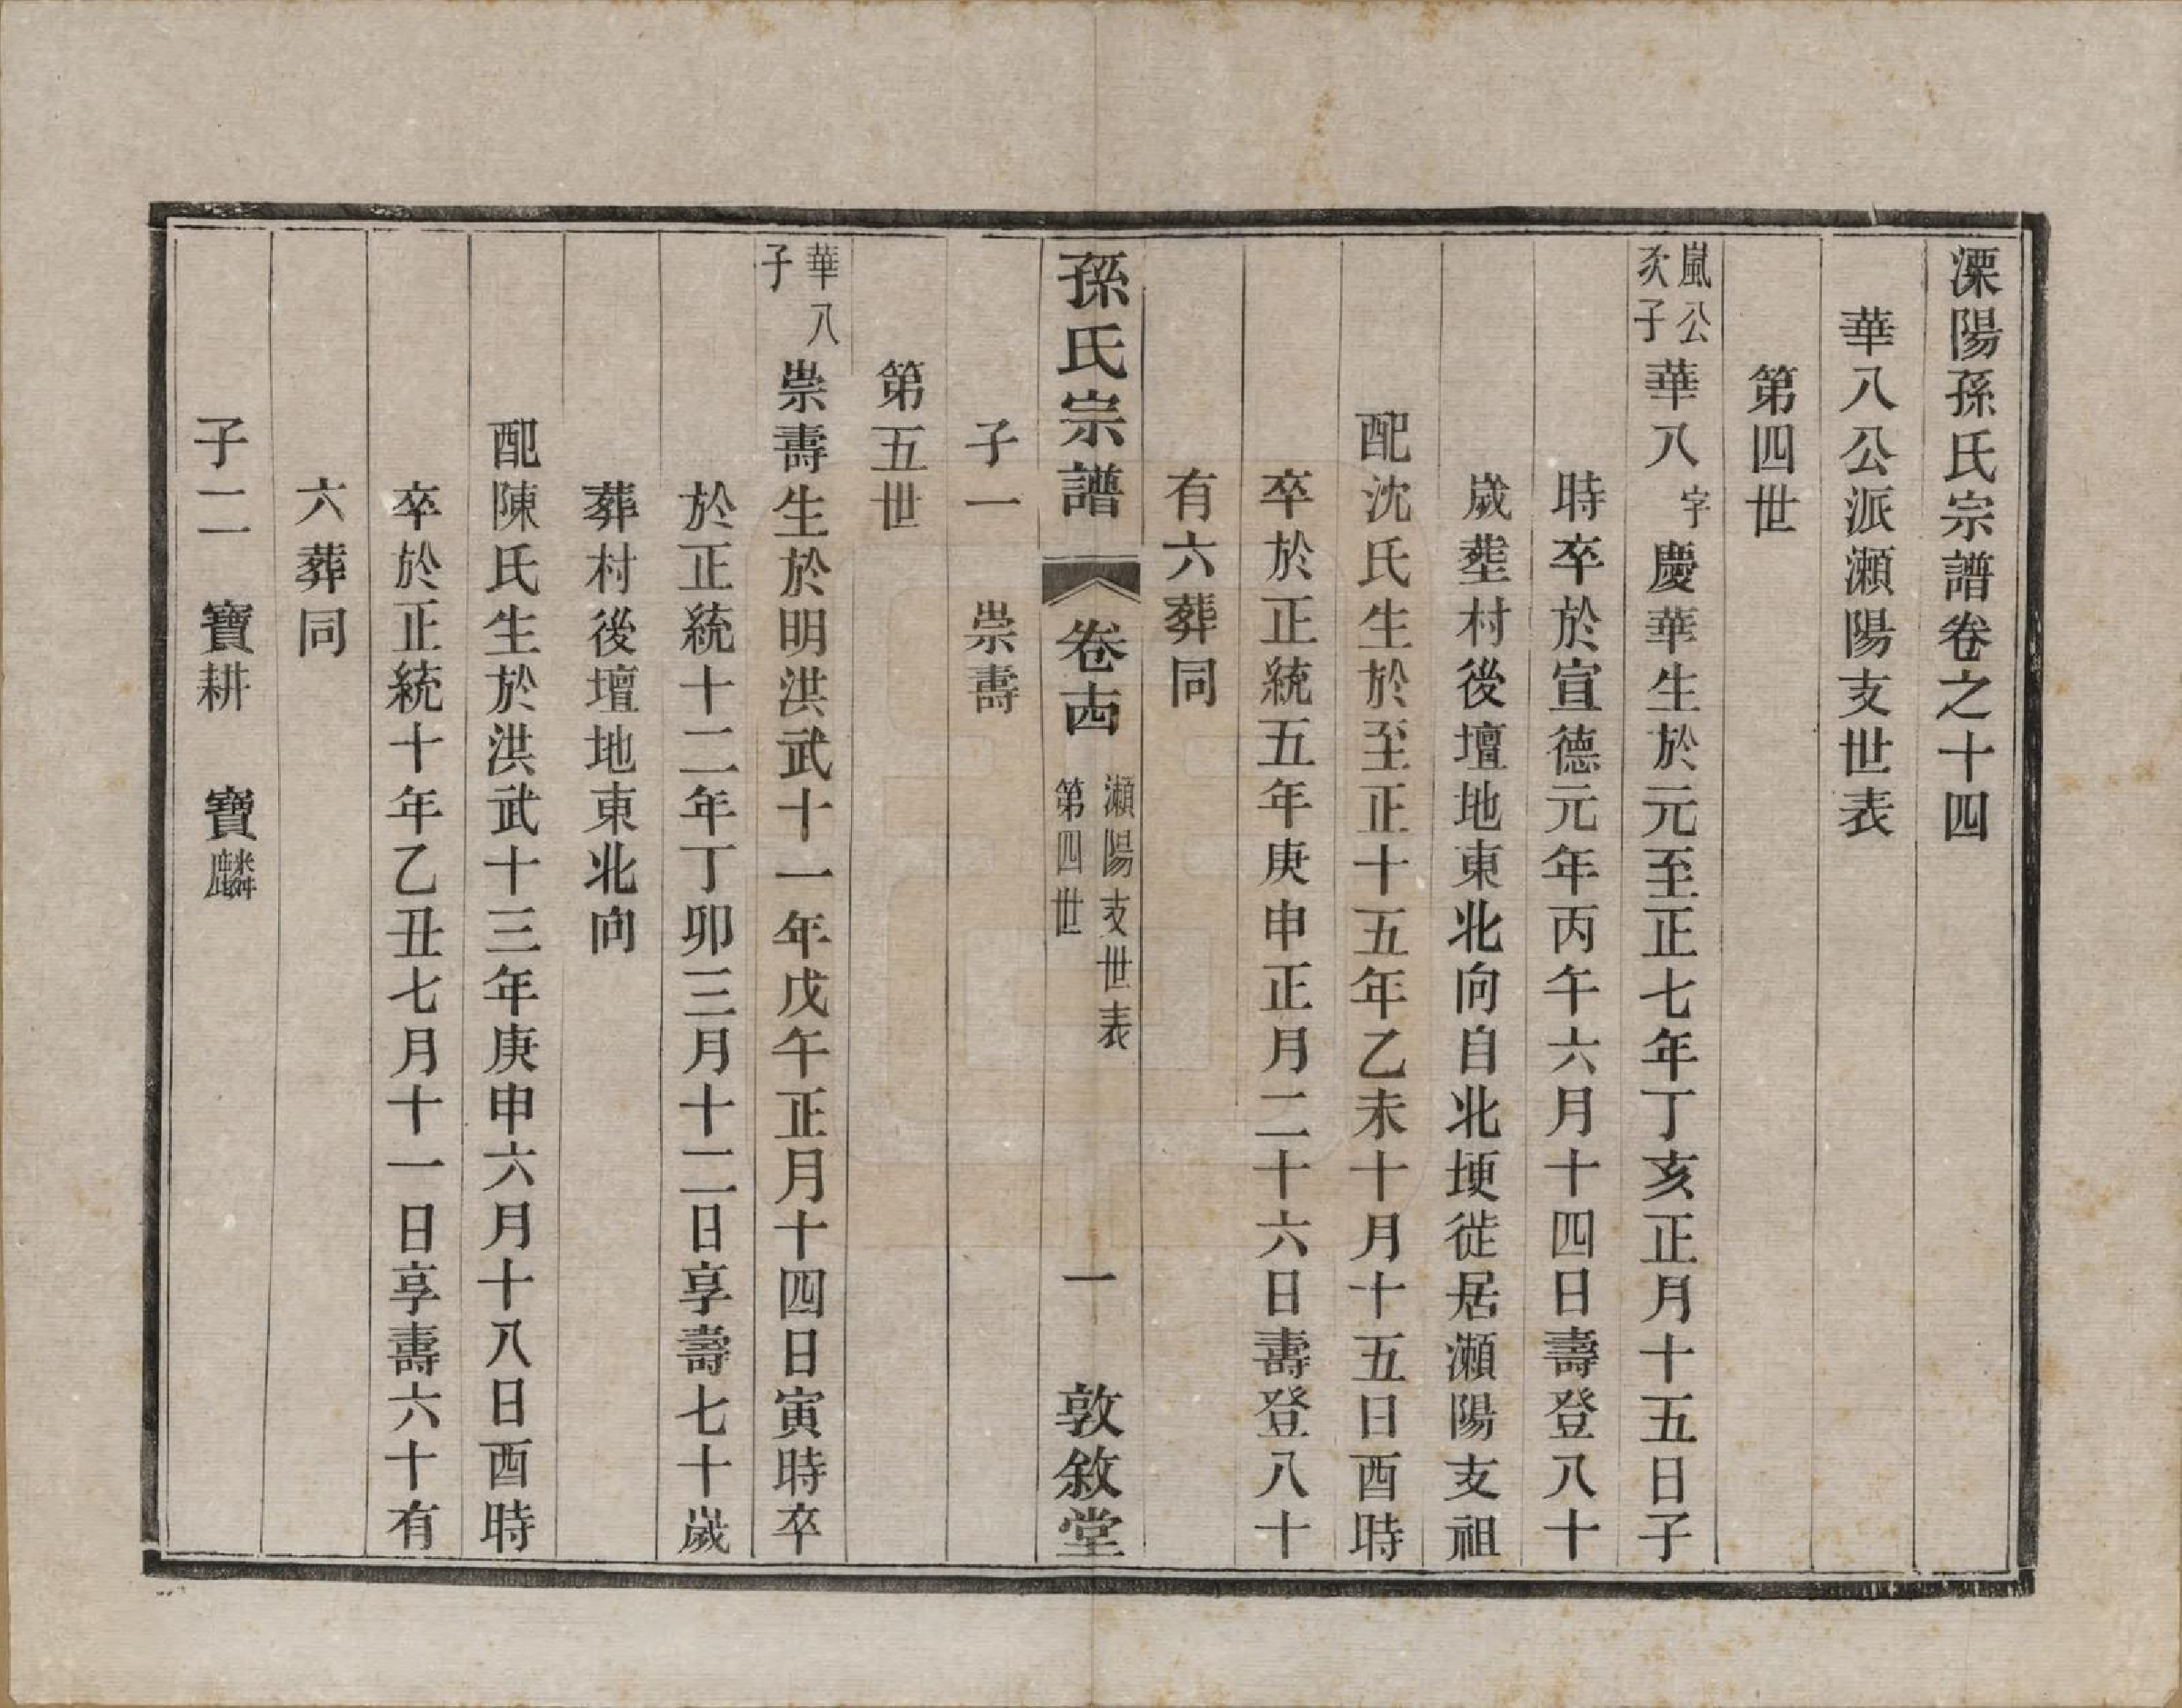 溧陽孫氏宗譜卷之十四
華八公派瀨陽支世表
第四世
嵐公次子 華八 字慶華生於元至正七年丁亥正月十五日子
時卒於宣德元年丙午六月十四日壽登八十
歲塟村後壇地東北向自北埂徙居瀨陽支祖
配沈氏生於至正十五年乙未十月十五日酉時
卒於正統五年庚申正月二十六日壽登八十
有六葬同
孫氏宗譜 卷十四 瀨陽支世表 第四世 一 敦敘堂
子一 崇壽
第五世
華八子 崇壽生於明洪武十一年戊午正月十四日寅時卒
於正統十二年丁卯三月十二日享壽七十歲
葬村後壇地東北向
配陳氏生於洪武十三年庚申六月十八日酉時
卒於正統十年乙丑七月十一日享壽六十有
六葬同
子二 寶耕 寶麟